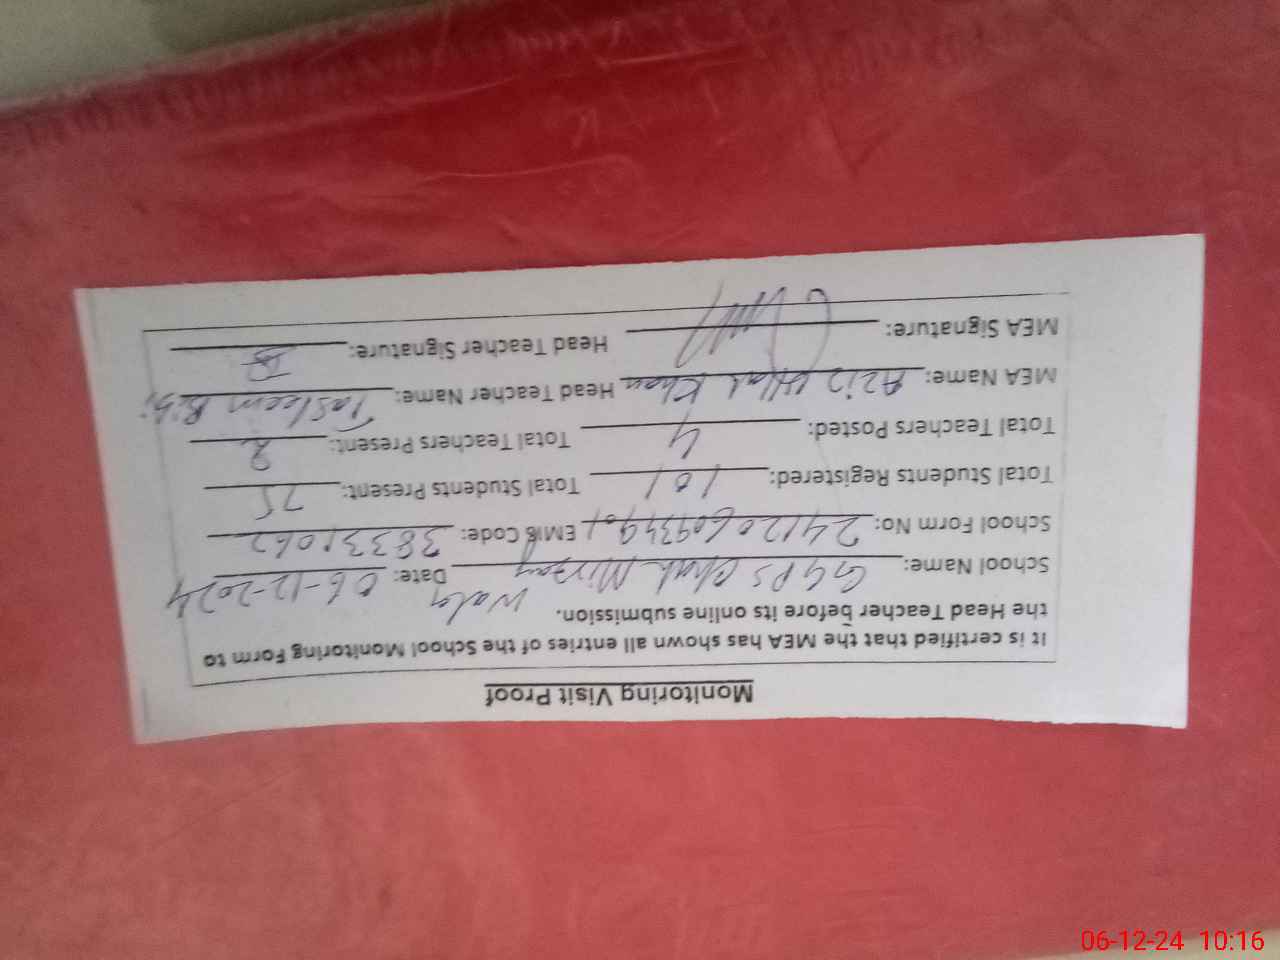 Monitoring Visit Proof
It is certified that the MEA has shown all entries of the School Monitoring Form to
the Head Teacher before its online submission.
School Name: GGPS Chah Mirzay Wala Date: 06-12-2024
School Form No: EMIS Code:
Total Students Registered: 101 Total Students Present: 75
Total Teachers Posted: 4 Total Teachers Present: 2
MEA Name: Aziz Ullah Khan Head Teacher Name: Tasleem Bibi
MEA Signature: Head Teacher Signature:
06-12-24 10:16